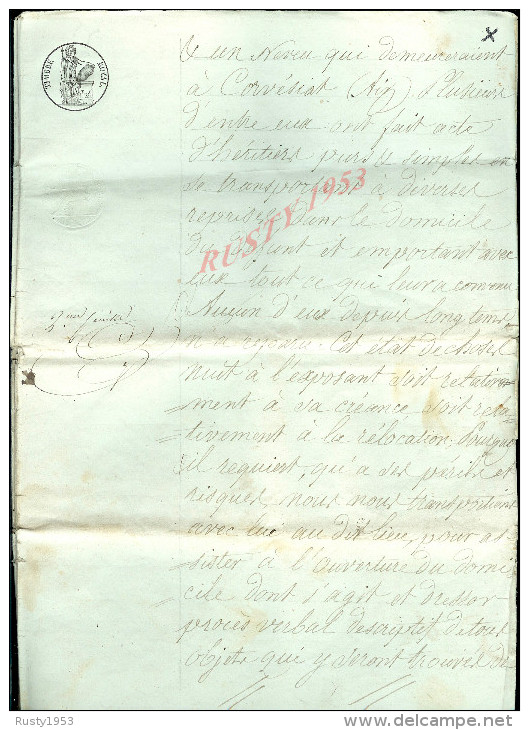 TIMBRE ROYAL
x
& un Neveu qui demeureraient
à Corvésiat (Ain). Plusieurs
d'entre eux ont fait acte
d'heritiers purs & simples en
se transportant à diverses
reprises dans le domicile
du défunt et emportant avec
eux tout ce qui leur a convenu
Aucun d'eux depuis long tems
n'a reparu. Cet état de choses
nuit à l'exposant soit relative-
ment à sa créance, soit rela-
tivement à la rélocation. Pourquoi
il requiert, qu'a ses périls et
risques, nous nous transportions
avec lui au dit lieu, pour as-
sister à l'ouverture du domi-
cile dont s'agit et dresser
procès verbal descriptif de tous
objets qui y seront trouvés de
RUSTY 1953
Rusty1953
www.delcampe.net